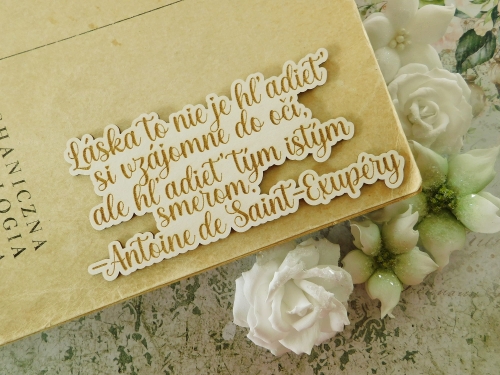 Láska to nie je hľadieť
si vzájomne do očí,
ale hľadieť tým istým
smerom.
-Antoine de Saint-Exupéry